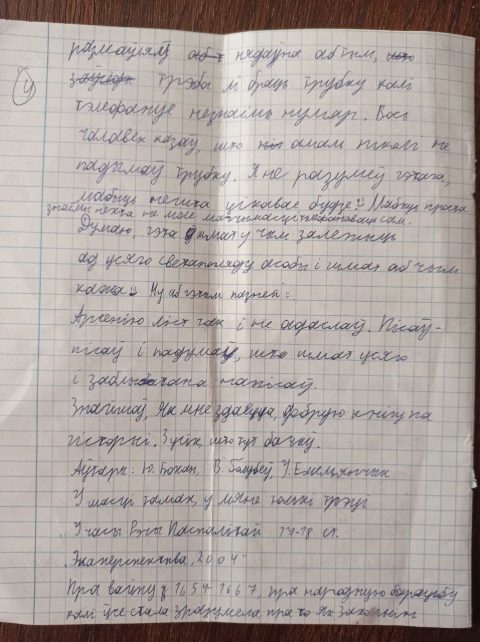 4
размаўлялі нядаўна аб тым,
трэба лі браць трубку калі
тэлефануе незнаёмы нумар. Вось
чалавек казаў, што амаль ніколі не
падымаў трубку. Я не разумеў гэтага,
мабыць нешта цікавае будзе :) Мабыць проста
знаёмы нехта не мае магчымасці тэлефанаваць сам.
Думаю, гэта шмат у чым залежыць
ад усяго светапогляду асобы і шмат аб чым
кажа :) Ну аб гэтым пазней :)
Арсенію ліст так і не адаслаў. Пісаў-
пісаў і падумаў, што шмат усяго
і заблытана напісаў.
Знайшоў, як мне здаецца, добрую кнігу па
гісторыі. З усіх, што тут бачыў.
Аўтары: Ю. Бохан, В. Голубеў, У. Емельянчык
У шасці тамах, у мяне толькі трэці
"У часы Рэчы Паспалітай 17-18 ст."
"Экаперспектыва, 2004"
Пра вайну 1654-1667, пра народную барацьбу
калі ўсе стала зразумела, пра то як